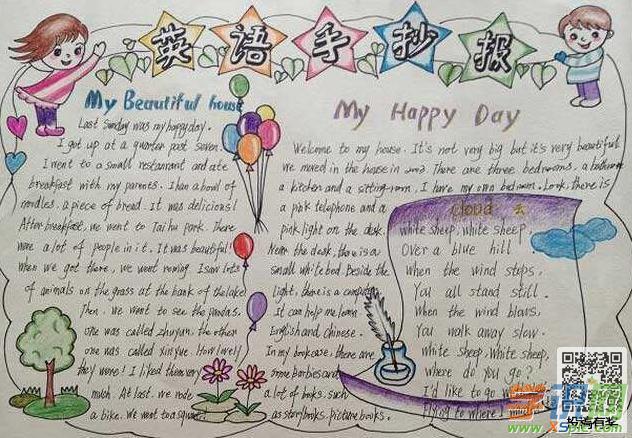 英语手抄报
My Beautiful house
Last Sunday was my happy day.
I got up at a quarter past seven.
I went to a small restaurant and ate
breakfast with my parents. I han a bowl of
noodles, a piece of bread. It was delicious!
After breakfast, we went to Tai hu park. There
were a lot of people in it. It was beautiful!
When we got there, we went rowing I saw lots
of animals on the grass at the bank of the lake!
Then, we want to see the pandas.
one was called zhuyun, the other
one was called xin yue. How lovely
they were! I liked them very
much. At last, we rode
a bike. We went to a square!
My Happy Day
Welcome to my house. It's not very big but it's very beautiful
we moved in the house in There are three bedrooms, a bathroom
a kitchen and a sitting room. I have my own bedroom. Look, there is
a pink telephone and a
pink light on the desk.
Near the desk, there is a
small white bed. Beside the
light, there is a computer
It can help me learn
English and chinese.
In my bookcase, there are
some barbies and
a lot of books, such
as storybooks, picture books.
cloud 云
white sheep, white sheep,
Over a blue hill.
When the wind stops,
You all stand still.
When the wind blows,
You walk away slow.
White sheep, White sheep,
where do you go?
I'd like to go
to where I
投稿有奖